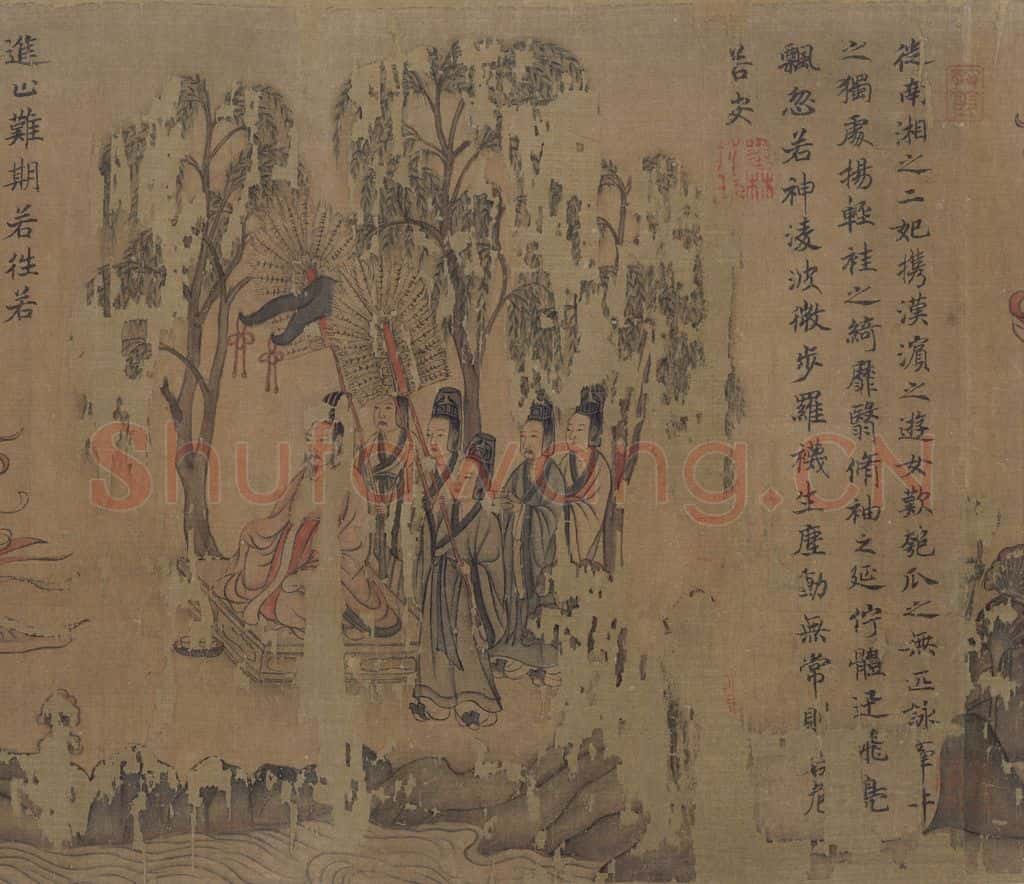 從南湘之二妃携漢濱之遊女歎匏瓜之無匹詠牽牛
之獨處揚輕袿之綺靡翳脩袖之延佇體迅飛鳧
飄忽若神淩波微步羅襪生塵動無常則若危
若安
進止難期若往若
Shufawang.CN